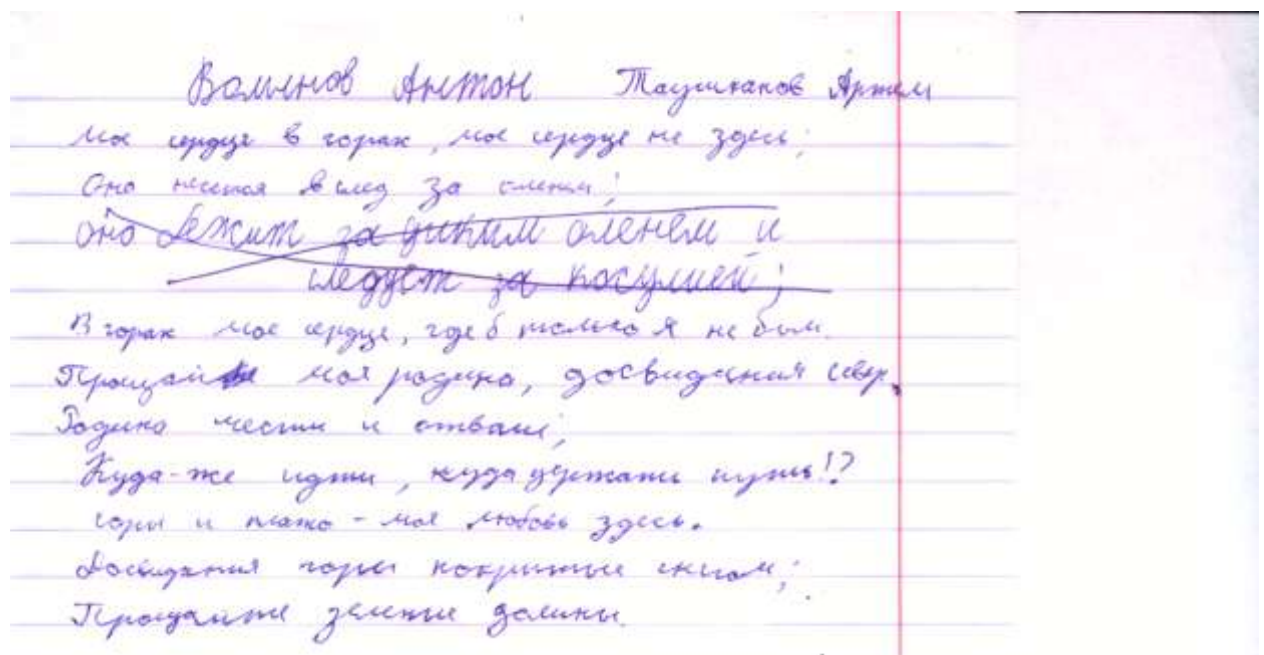 Волынов Антон Таушканов Артем
Мое сердце в горах, мое сердце не здесь;
Оно несется в след за оленем;
оно бежит за диким оленем и
следует за косулией;
В горах мое сердце, где б только я не был.
Прощай моя родина, досвидания север,
Родина чести и отваги;
Куда-же идти, куда держать путь!?
горы и плато - моя любовь здесь.
Досвидания горы покрытые снегом;
Прощайте зеленые долины.